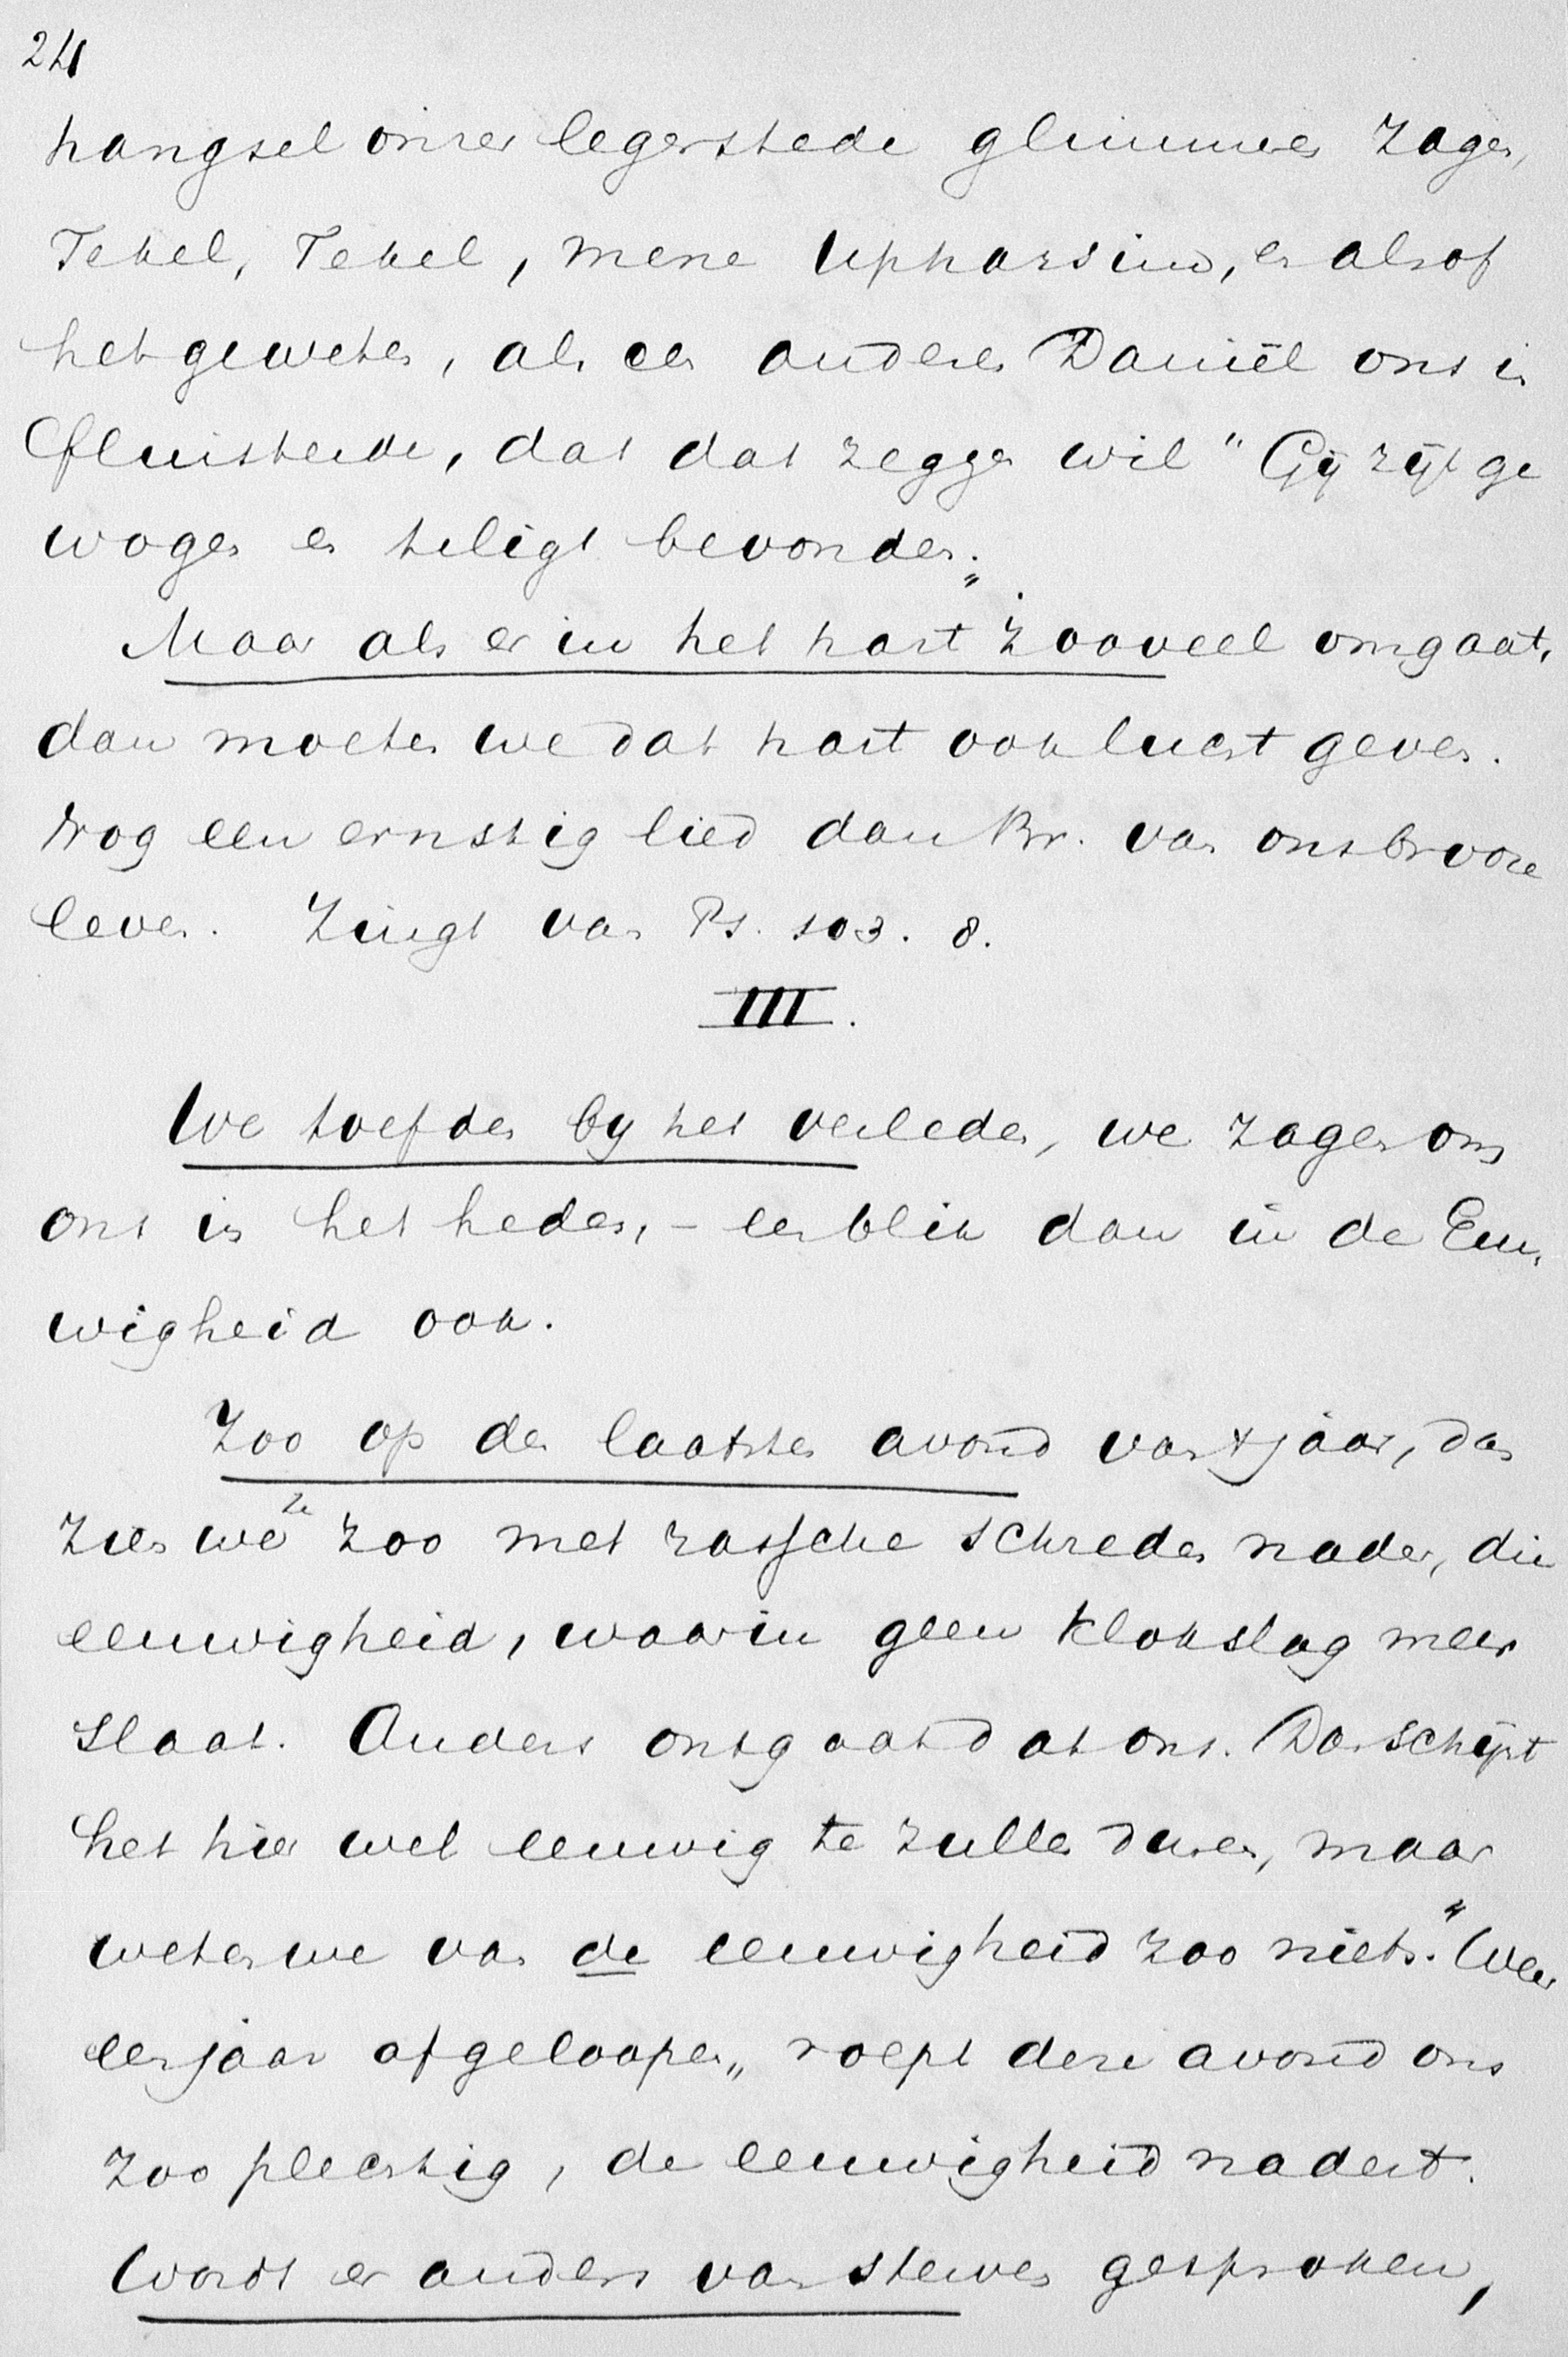 24
hangsel onzer legerstede glimmen zagen,
Tekel, Tekel, mene Upharsin, en alsof
het geweten, als een andere Daniël ons in
fluisterde, dat dat zeggen wil "Gij zijt ge
wogen en te ligt bevonden."
Maar als er in het hart zooveel omgaat,
dan moeten we dat hart ook lucht geven.
Nog een ernstig lied dan Br. van ons broze
leven. Zingt van Ps. 103. 8.
III.
We toefden by het verleden, we zagen om
ons in het heden, - een blik dan in de Eeu,
wigheid ook.
Zoo op den laatsten avond van 't jaar, dan
zien we ze zoo met rassche schreden naderen, die
eeuwigheid, waarin geen klokslag meer
slaat. Anders ontgaat dat ons. Dan schijnt
het hier wel eeuwig te zullen duren, maar
weten we van de eeuwigheid zoo niets. "Weer
een jaar afgeloopen" roept deze avond ons
zoo plechtig, de eeuwigheid nadert.
Wordt er anders van sterven gesproken,